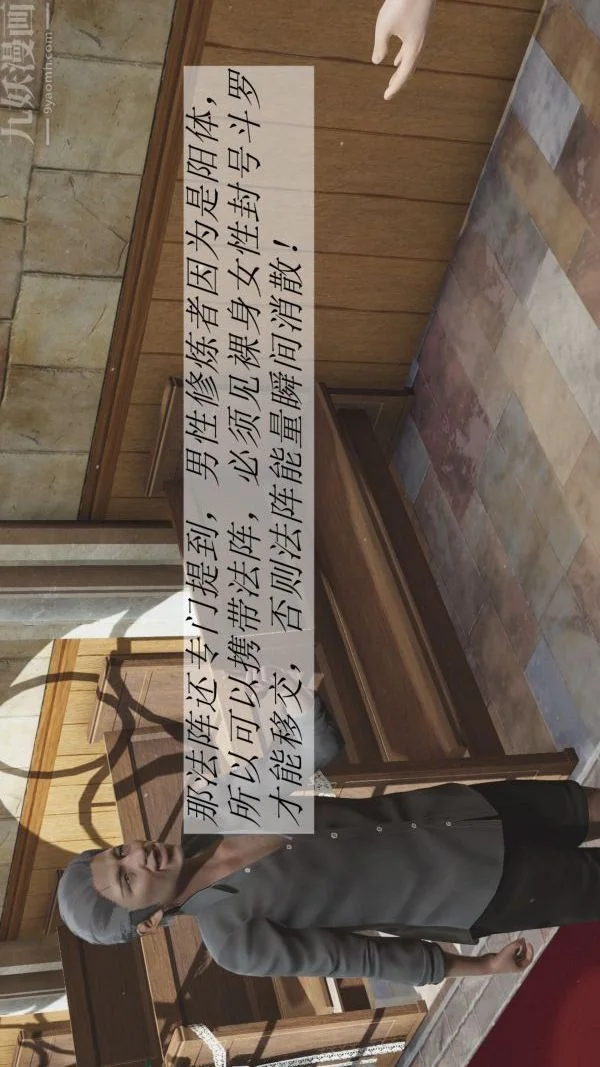 九妖漫画
9yaomh.com
那法阵还专门提到，男性修炼者因为是阳体，
所以可以携带法阵，必须见裸身女性封号斗罗
才能移交，否则法阵能量瞬间消散！